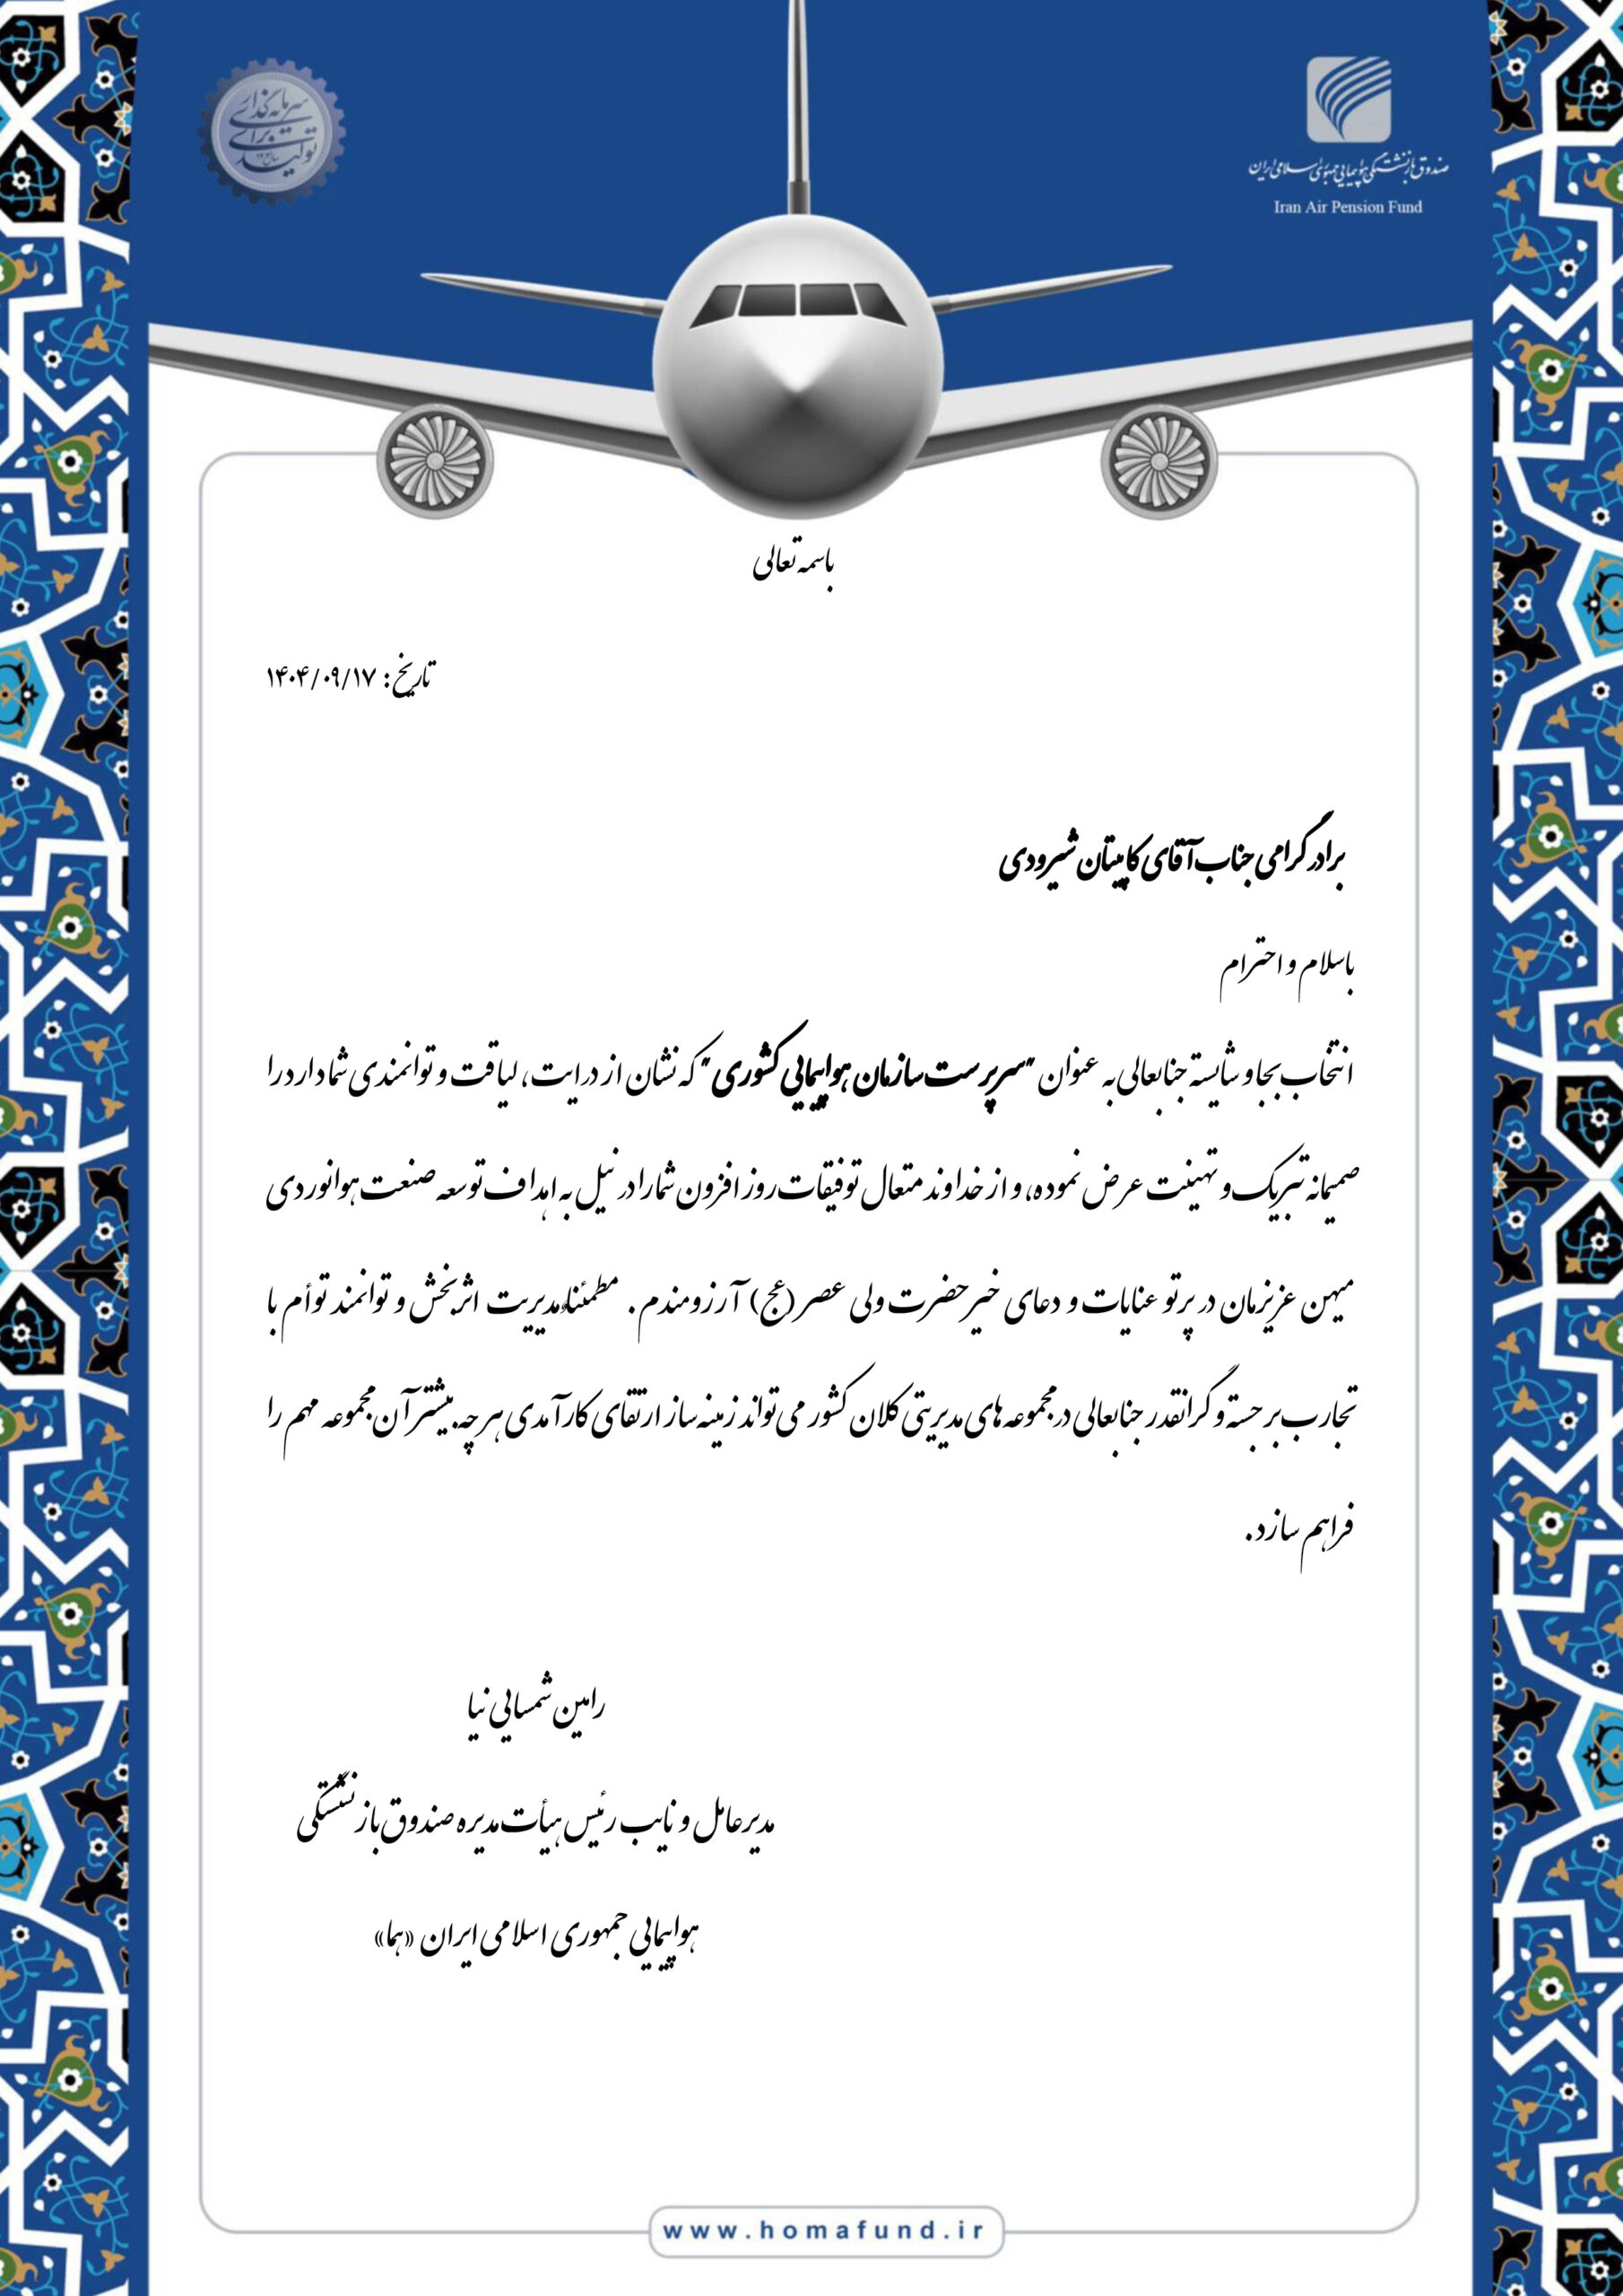 سرمایه‌گذاری
برای
تولید
صندوق بازنشستگی هواپیمایی جمهوری اسلامی ایران
Iran Air Pension Fund
باسمه تعالی
تاریخ: ۱۴۰۴/۰۹/۱۷
برادر گرامی جناب آقای کاپیتان شیرودی
با سلام و احترام
انتخاب بجا و شایسته جنابعالی به عنوان "سرپرست سازمان هواپیمایی کشوری" که نشان از درایت، لیاقت و توانمندی شما دارد را
صمیمانه تبریک و تهنیت عرض نموده، و از خداوند متعال توفیقات روز افزون شما را در نیل به اهداف توسعه صنعت هوانوردی
میهن عزیزمان در پرتو عنایات و دعای خیر حضرت ولی عصر (عج) آرزومندم. مطمئناً مدیریت اثربخش و توانمند توأم با
تجارب برجسته و گرانقدر جنابعالی در مجموعه های مدیریتی کلان کشور می تواند زمینه ساز ارتقای کارآمدی هرچه بیشتر آن مجموعه مهم را
فراهم سازد.
رامین شمسایی نیا
مدیرعامل و نایب رئیس هیأت مدیره صندوق بازنشستگی
هواپیمایی جمهوری اسلامی ایران «هما»
www.homafund.ir